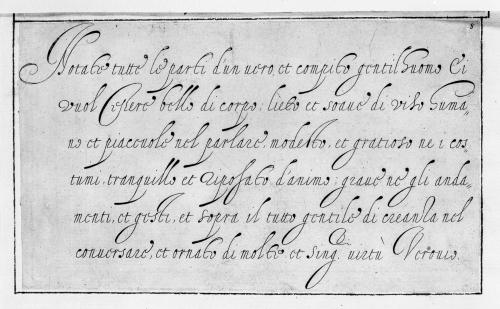 Notate tutte le parti d'un uero, et compito gentilhuomo Ei
vuol essere bello di corpo; lieto et soaue di viso huma=
no et piaceuole nel parlare, modesto, et gratioso ne i cos=
tumi, tranquillo et riposato d'animo; graue ne gli anda=
menti, et gesti, et sopra il tutto gentile di creanza nel
conuersare, et ornato di molte, et Sing.ri uirtù